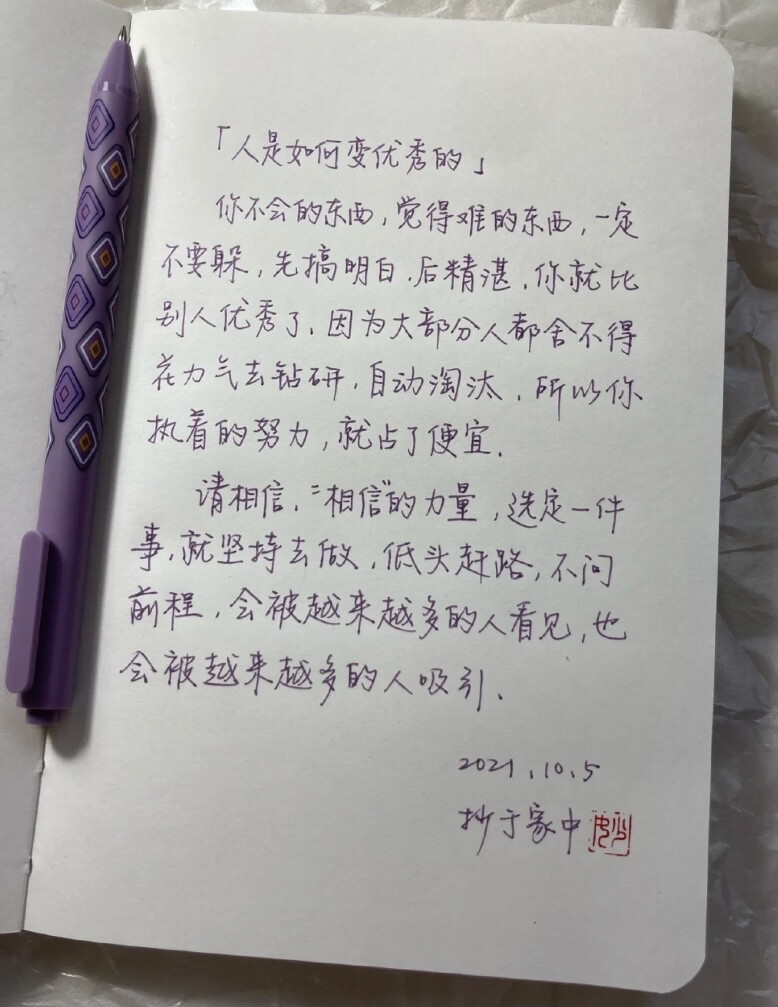 「人是如何变优秀的」
你不会的东西,觉得难的东西,一定
不要躲,先搞明白.后精湛,你就比
别人优秀了.因为大部分人都舍不得
花力气去钻研,自动淘汰,所以你
执着的努力,就占了便宜.
请相信,“相信”的力量,选定一件
事,就坚持去做,低头赶路,不问
前程,会被越来越多的人看见,也
会被越来越多的人吸引.
2021.10.5
抄于家中
妙